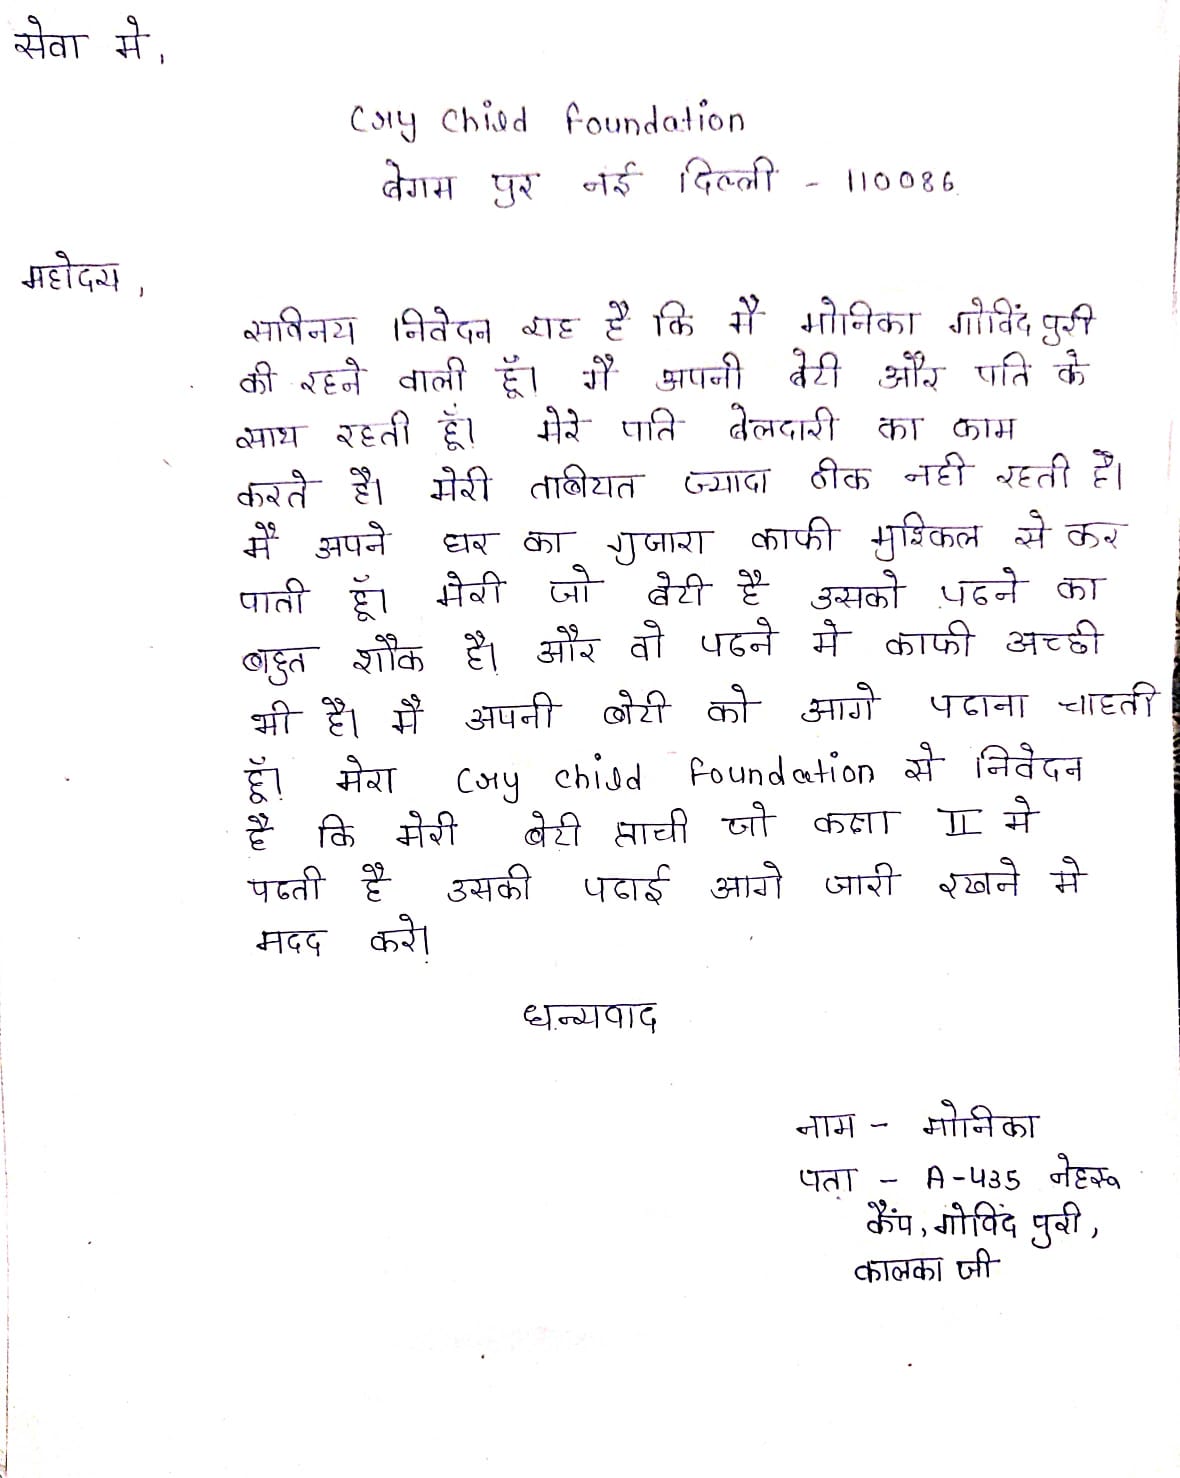 सेवा मे,
Cry Child Foundation
बेगम पुर नई दिल्ली - 110086
महोदय,
सविनय निवेदन यह है कि मैं मोनिका गोविंद पुरी
की रहने वाली हूँ। मैं अपनी बेटी और पति के
साथ रहती हूँ। मेरे पति बेलदारी का काम
करते है। मेरी तबीयत ज्यादा ठीक नही रहती है।
मैं अपने घर का गुजारा काफी मुश्किल से कर
पाती हूँ। मेरी जो बेटी है उसको पढने का
बहुत शौक है। और वो पढने मे काफी अच्छी
भी है। मैं अपनी बेटी को आगे पढाना चाहती
हूँ। मेरा Cry Child Foundation से निवेदन
है कि मेरी बेटी प्राची जो कक्षा II मे
पढती है उसकी पढाई आगे जारी रखने मे
मदद करे।
धन्यवाद
नाम - मोनिका
पता - A-435 नेहरू
कैंप, गोविंद पुरी,
कालका जी